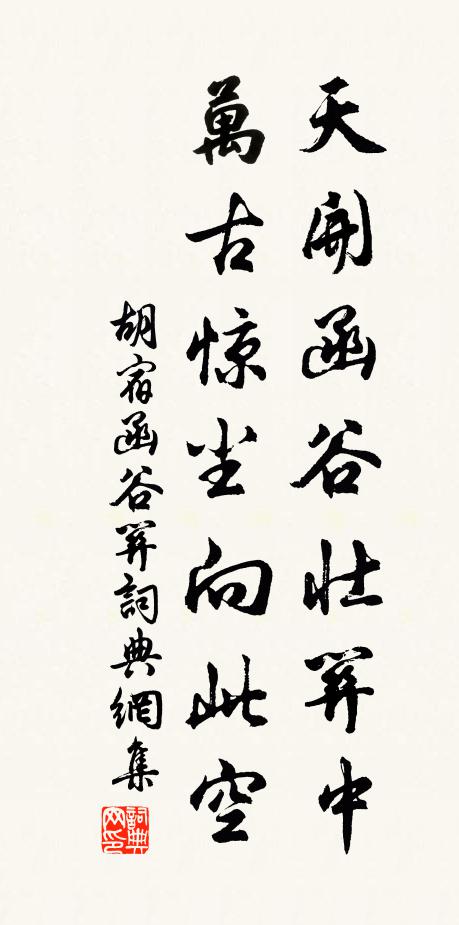 天開函谷壯關中
萬古惊尘向此空
胡宿函谷關詞典網集
詞典网印